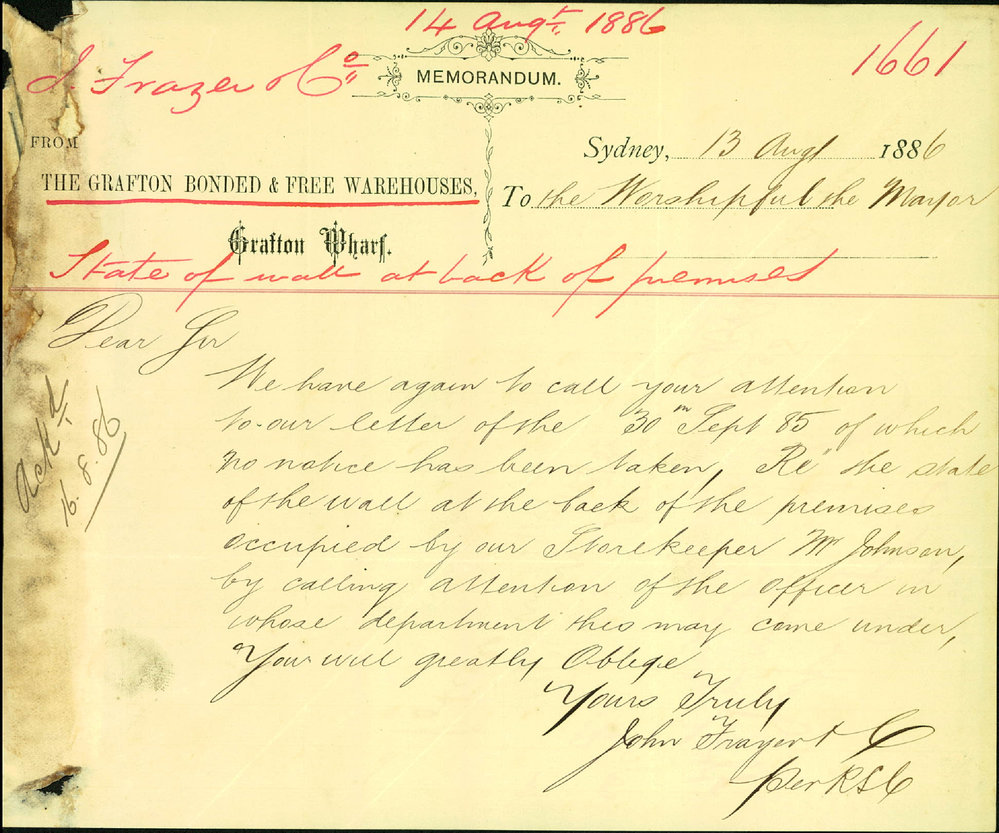 14 Augt. 1886
J. Frazer & Co
1661
MEMORANDUM.
FROM
THE GRAFTON BONDED & FREE WAREHOUSES,
Grafton Wharf.
Sydney, 13 Augt 1886
To the Worshipful the Mayor
State of wall at back of premises
Dear Sir
We have again to call your attention
to our letter of the 30th Sept 85 of which
no notice has been taken, Re the state
of the wall at the back of the premises
occupied by our Storekeeper Mr Johnson,
by calling attention of the officer in
whose department this may come under,
You will greatly Oblige
Yours Truly
John Frazer & Co
Per
Ackd
16.8.86